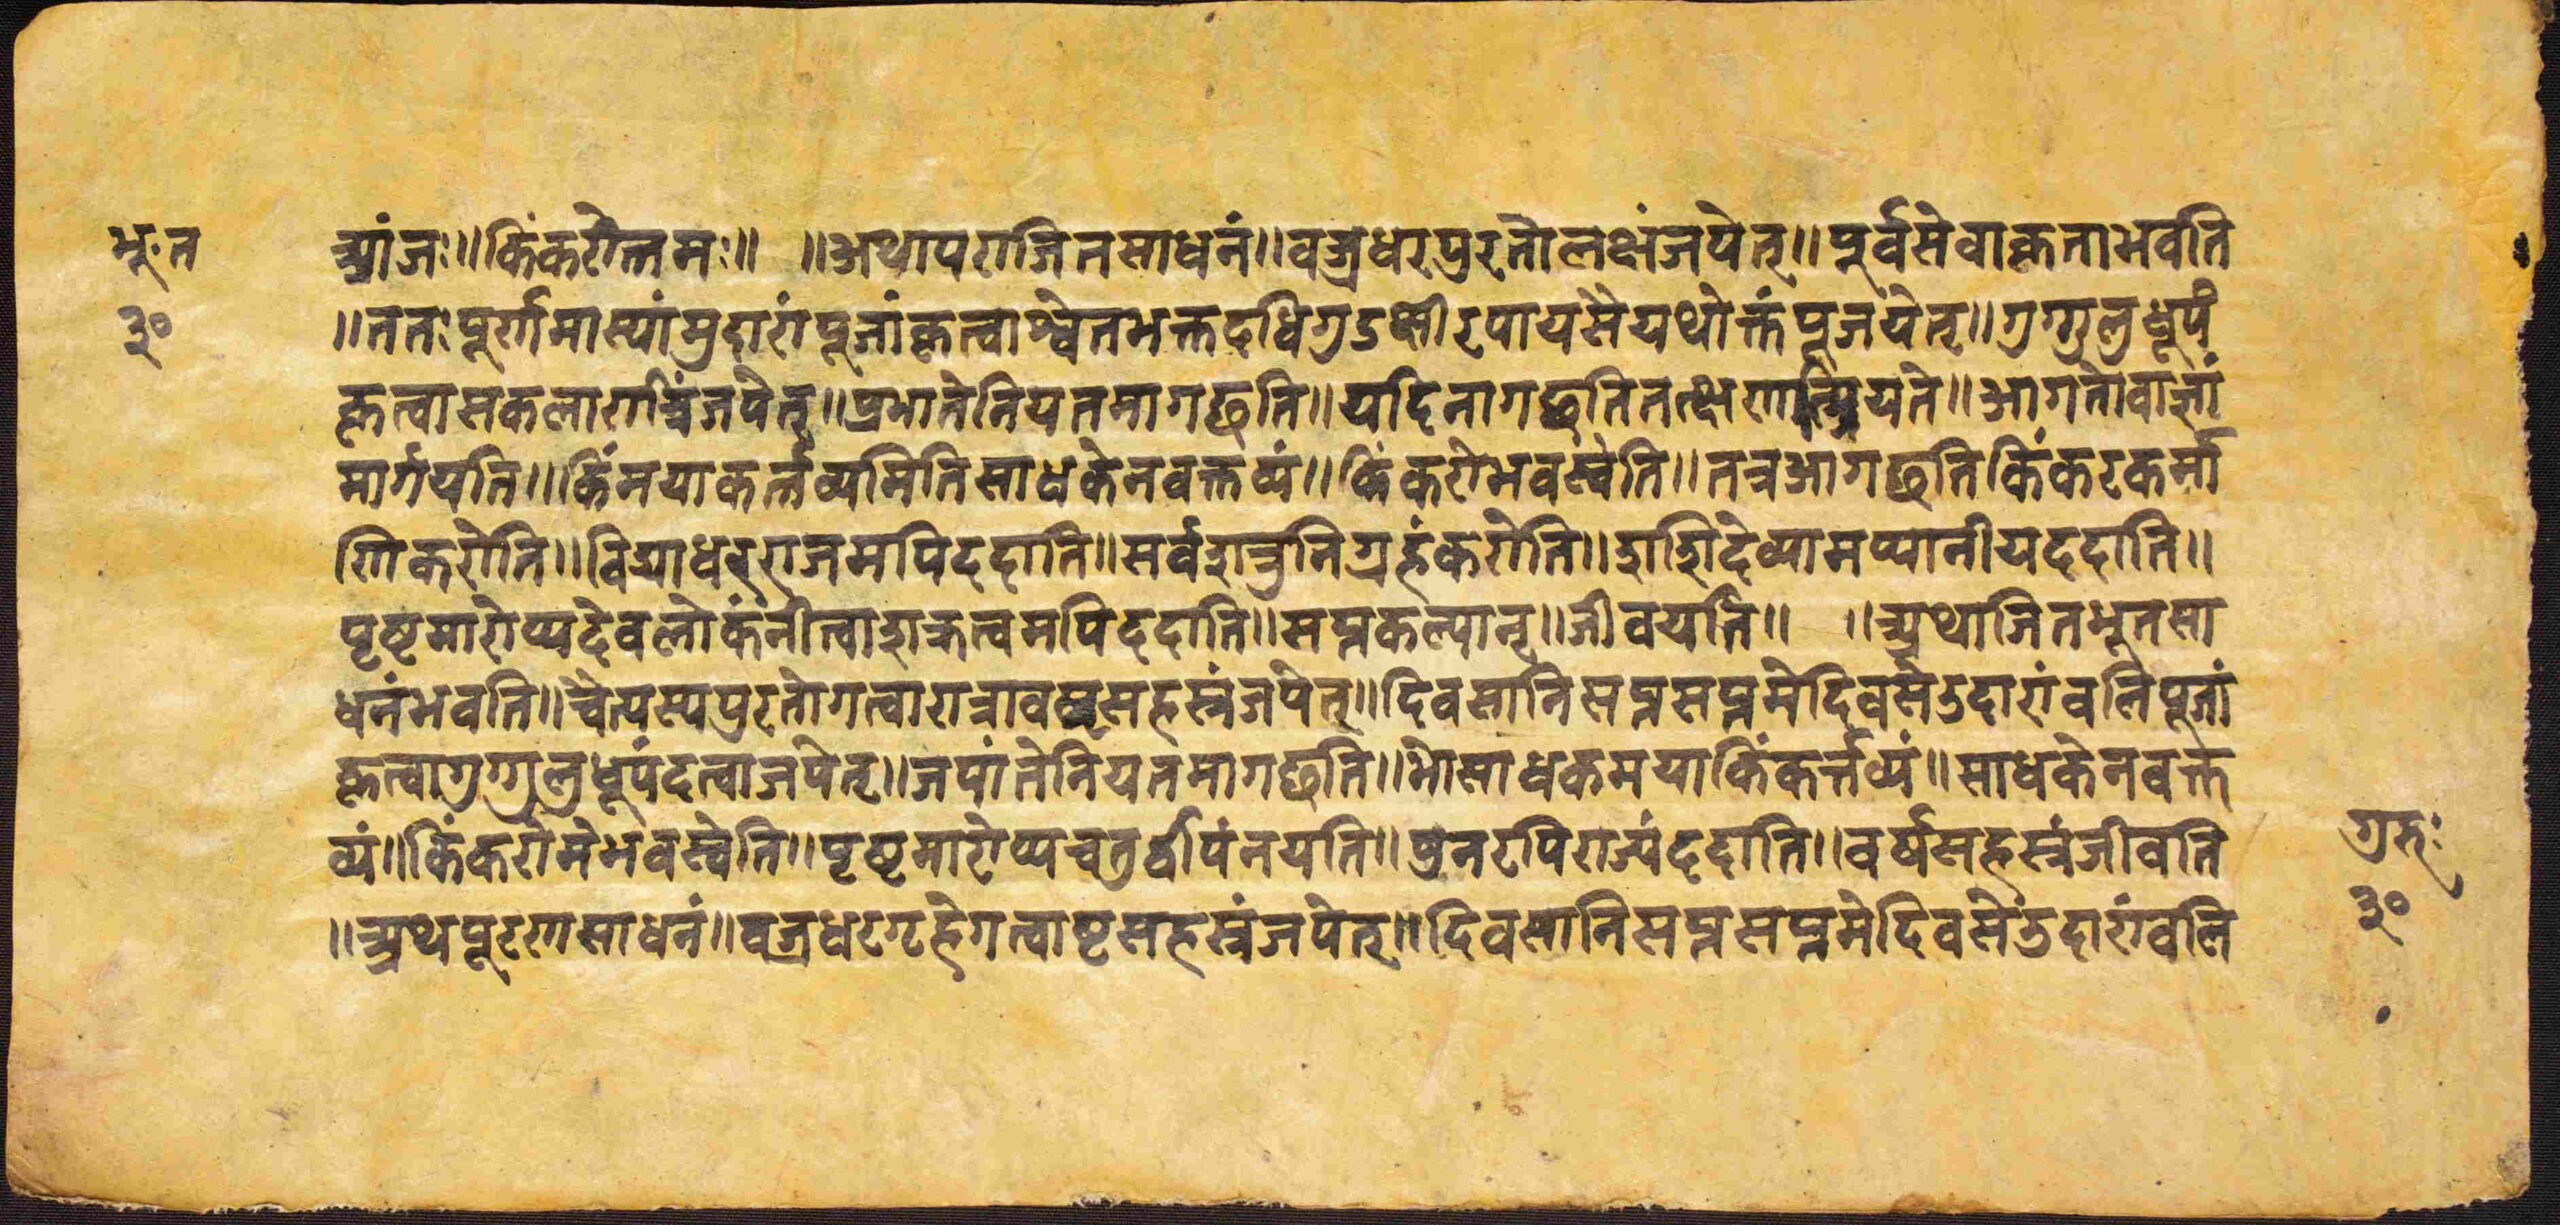 भूःत
३०
आंजः॥किंकरोत्तमः॥ ॥अथापराजितसाधनं॥वज्रधरपुरतोलक्षंजपेत्॥पूर्वसेवाकृताभवति
॥ततःपूर्णमास्यांमुदारांपूजांकृत्वाश्वेतभक्तदधिगुडक्षीरपायसैयथोक्तंपूजयेत्॥गुग्गुलुधूपं
कृत्वासकलारात्रिंजपेत्॥प्रभातेनियतमागछति॥यदिनागछतितत्क्षणान्म्रियते॥आगतोवाज्ञां
मार्गयति॥किंनयाकर्त्तव्यमितिसाधकेनवक्तव्यं॥किंकरोभवस्वेति॥तत्रआगछतिकिंकरकर्मा
णिकरोति॥विद्याधरराजमपिददाति॥सर्वशत्रुनिग्रहंकरोति॥शशिदेव्यामप्यानीयददाति॥
पृष्टमारोप्यदेवलोकंनीत्वाशक्रत्वमपिददाति॥सप्तकल्पान्॥जीवयति॥ ॥अथाजितभूतसा
धनंभवति॥चैत्यस्यपुरतोगत्वारात्रावष्टसहस्रंजपेत्॥दिवसानिसप्तसप्तमेदिवसेउदारांवलिपूजां
कृत्वागुग्गुलुधूपंदत्वाजपेत्॥जपांतेनियतमागछति॥भोसाधकमयाकिंकर्त्तव्यं॥साधकेनवक्त
व्यं॥किंकरोमेभवस्वेति॥पृष्टमारोप्यचतुर्द्वीपंनयति॥पुनरपिराज्यंददाति॥वर्षसहस्रंजीवति
॥अथपूरणसाधनं॥वज्रधरगृहेगत्वाष्टसहस्रंजपेत्॥दिवसानिसप्तसप्तमेदिवसेउदारांवलि
गुरुः
३०